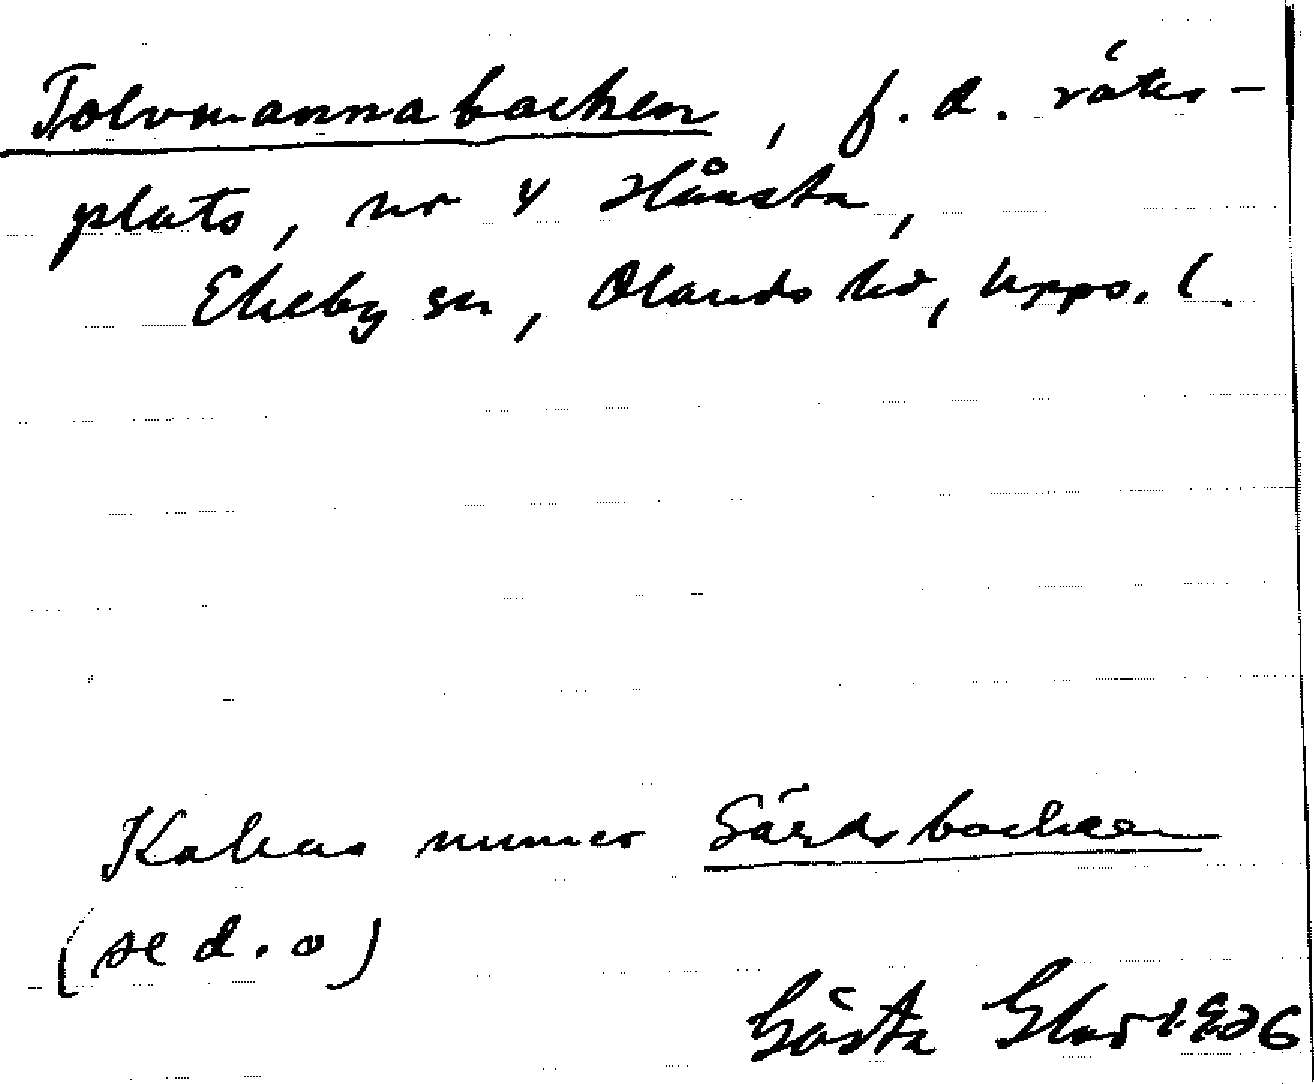 Tolvmannabacken, f.d. rätts-
plats, nr 4 Hånsta,
Ekeby sn, Olands hd, Upps. l.
Kallas numer Gärdsbacken
(se d. o)
Gösta 1926